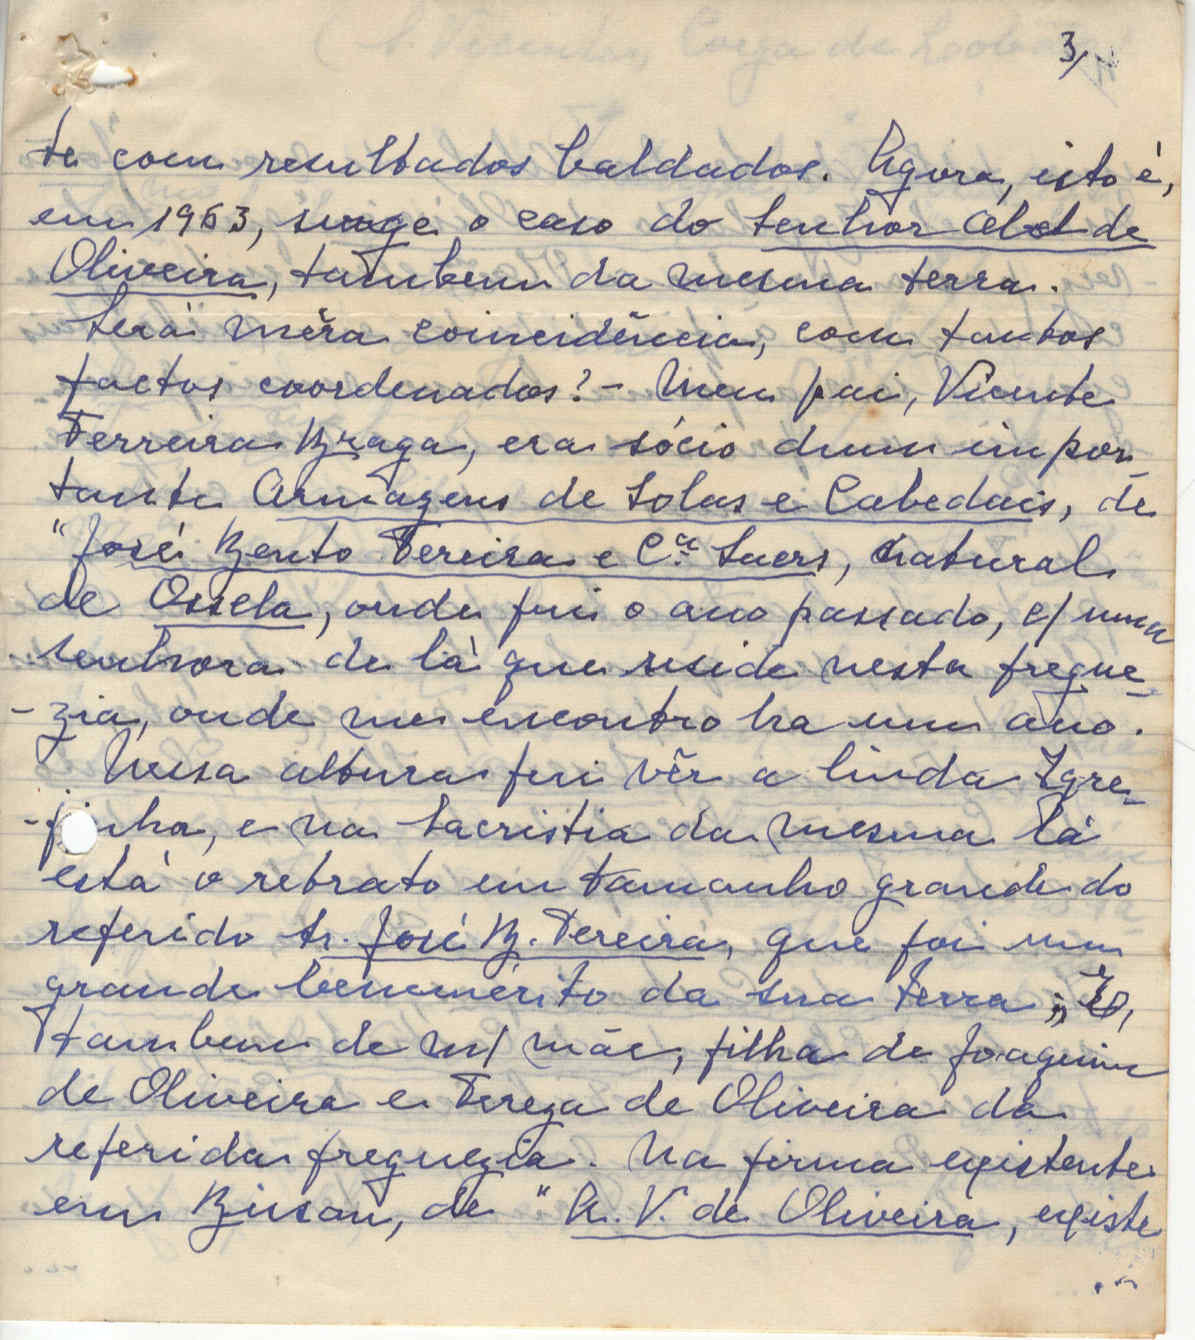 3/
te com resultados baldados. Agora, isto é,
em 1963, surge o caso do Senhor Abel de
Oliveira, tambem da mesma terra.
Será méra coincidência, com tantos
factos coordenados? - Meu pai, Vicente
Ferreira Braga, era sócio dum impor-
tante Armagens de Solas e Cabedais, de
"José Bento Pereira e Cª. Sucrs, natural
de Ossela, onde fui o ano passado, c/ uma
senhora de lá que reside nesta fregue-
-zia, onde me encontro ha um ano.
Nessa altura fui vêr a linda Igre-
-jinha, e na Sacristia da mesma lá
está o retrato em tamanho grande do
referido Sr. José B. Pereira, que foi um
grande benemérito da sua terra;
tambem de m/ mãe, filha de Joaquim
de Oliveira e Tereza de Oliveira da
referida freguezia. Na firma existente
em Bissau, de "A. V. de Oliveira, existe